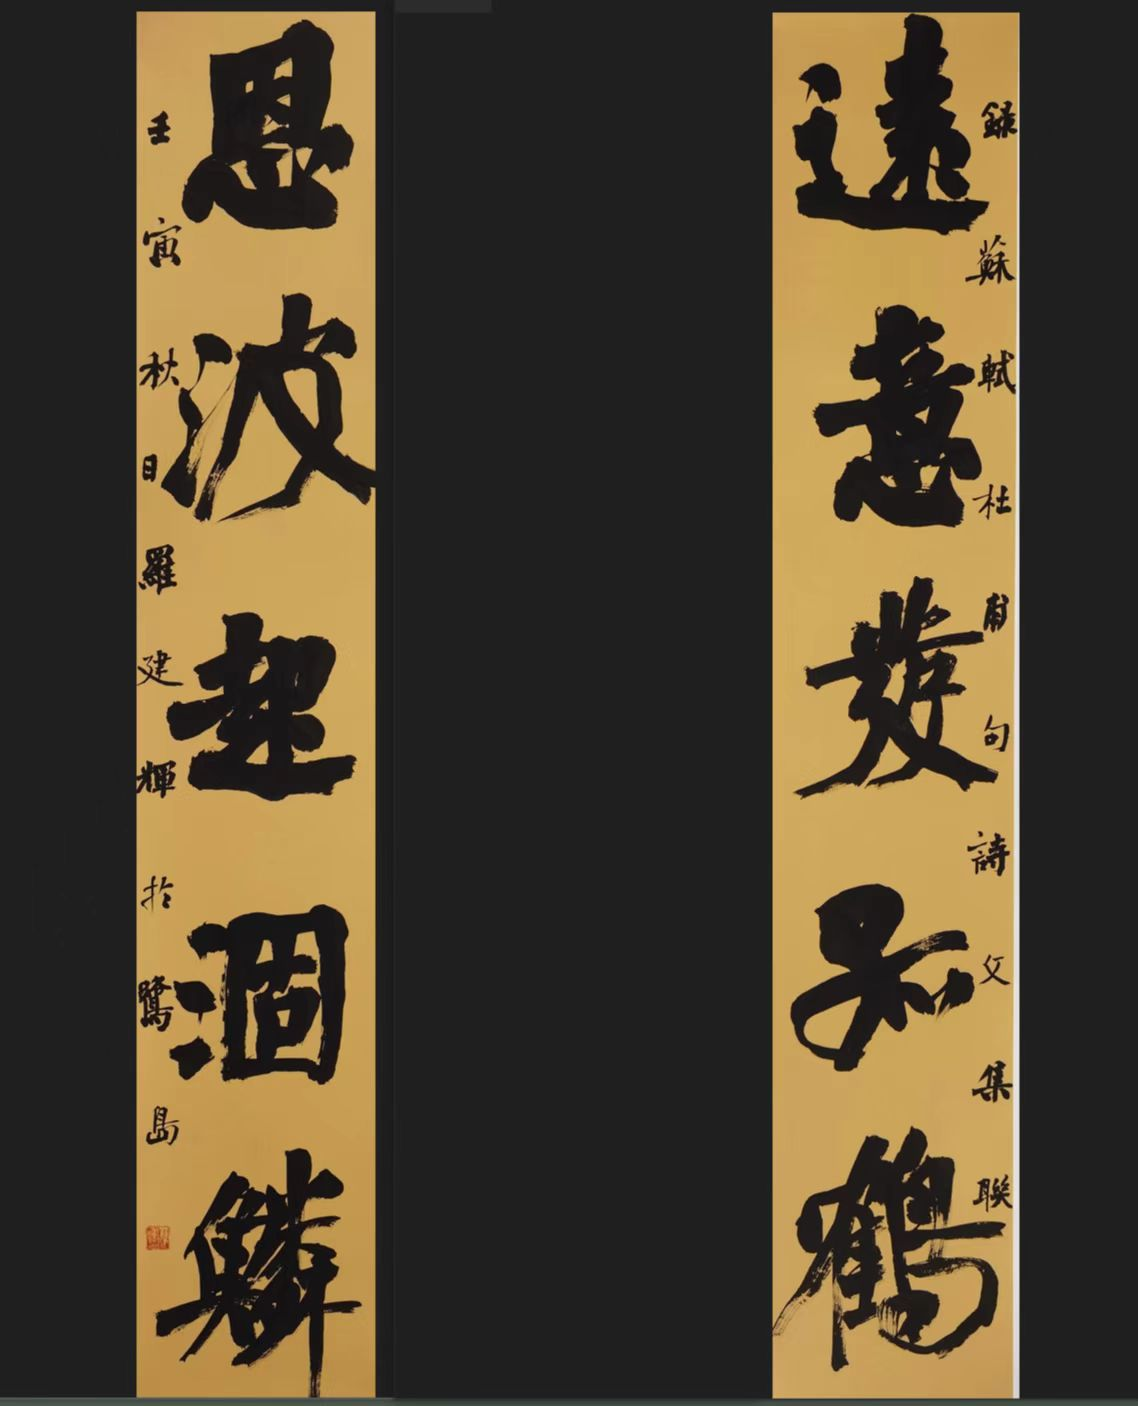 録蘇軾杜甫句詩集聯
遠意發孤鶴
恩波起涸鱗
壬寅秋日羅建輝扵鷺島